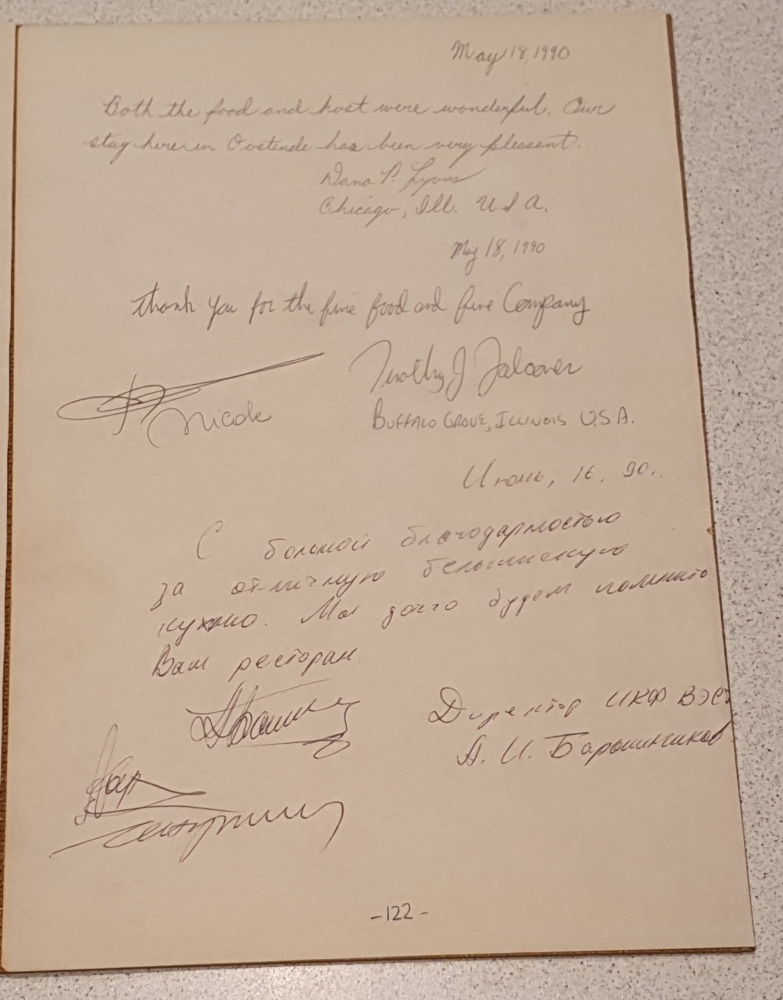 May 18, 1990
Both the food and host were wonderful. Our
stay here in Oostende has been very pleasant.
Dana P. Lyons
Chicago, Ill. U S A.
May 18, 1990
Thank you for the fine food and fine Company
Timothy J. Falconer
Nicole
BUFFALO GROVE, ILLINOIS U.S.A.
Июнь, 16, 90.
С большой благодарностью
за отличную бельгийскую
кухню. Мы долго будем помнить
Ваш ресторан
Директор ИКФ ВЭС
А. И. Барышников
-122-